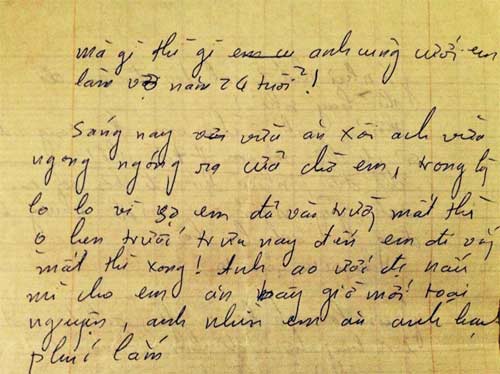 mà gì thì gì anh cũng cưới em
làm vợ năm 24 tuổi!
Sáng nay vừa ăn xôi anh vừa
ngong ngóng ra cửa chờ em, trong lòng
lo lo vì sợ em đã vào trường mất thì
o hẹn trước trưa nay đến em đi vắng
mất thì xong! Anh ao ước được nấu
mì cho em ăn bây giờ mới toại
nguyện, anh nhìn em ăn anh hạnh
phúc lắm